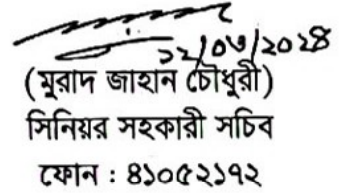 ১২/০৩/২০২৪
(মুরাদ জাহান চৌধুরী)
সিনিয়র সহকারী সচিব
ফোন : ৪১০৫২১৭২